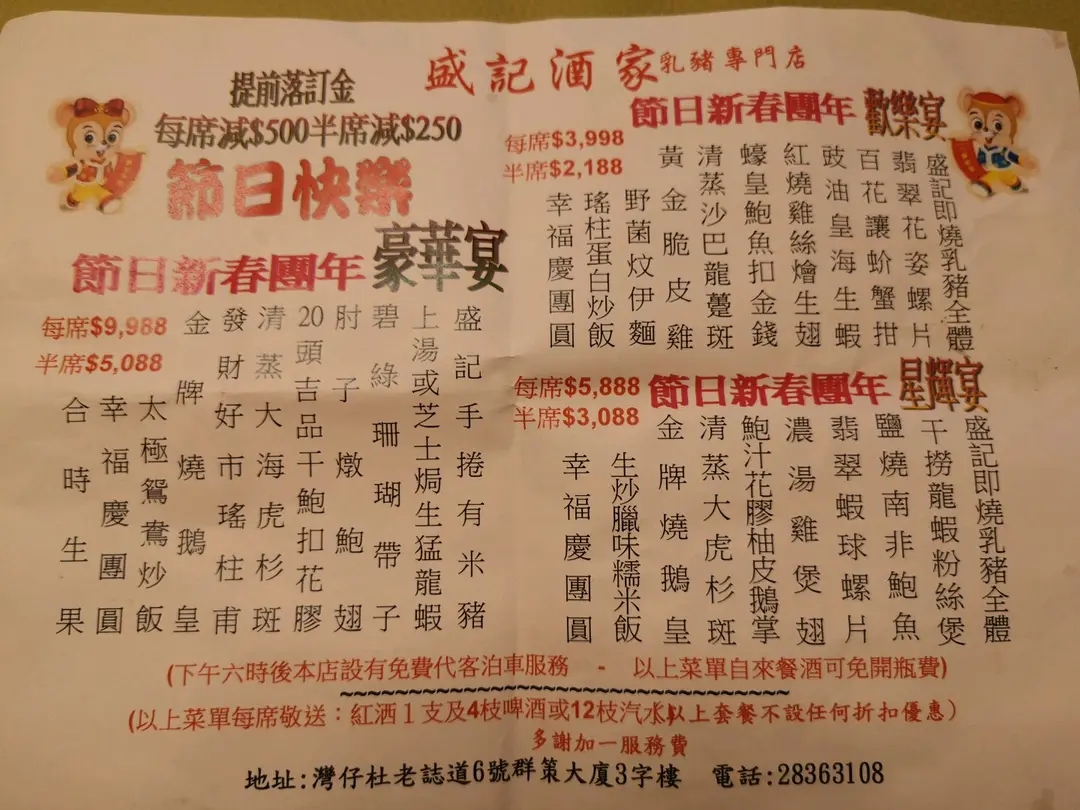 盛記酒家乳豬專門店
提前落訂金
每席減$500半席減$250
節日快樂
節日新春團年歡樂宴
每席$3,998
半席$2,188
盛記即燒乳豬全體
翡翠花姿螺片
百花讓蚧蟹拑
豉油皇海生蝦
紅燒雞絲燴生翅
蠔皇鮑魚扣金錢
清蒸沙巴龍躉斑
黃金脆皮雞
野菌炆伊麵
瑤柱蛋白炒飯
幸福慶團圓
節日新春團年豪華宴
每席$9,988
半席$5,088
盛記手捲有米豬
上湯或芝士焗生猛龍蝦
碧綠珊瑚帶子
肘子燉鮑翅
20頭吉品干鮑扣花膠
清蒸大海虎杉斑
發財好市瑤柱甫
金牌燒鵝皇
太極鴛鴦炒飯
幸福慶團圓
合時生果
節日新春團年星輝宴
每席$5,888
半席$3,088
盛記即燒乳豬全體
干撈龍蝦粉絲煲
鹽燒南非鮑魚
翡翠蝦球螺片
濃湯雞煲翅
鮑汁花膠柚皮鵝掌
清蒸大虎杉斑
金牌燒鵝皇
生炒臘味糯米飯
幸福慶團圓
(下午六時後本店設有免費代客泊車服務 - 以上菜單自來餐酒可免開瓶費)
(以上菜單每席敬送：紅酒1支及4枝啤酒或12枝汽水以上套餐不設任何折扣優惠)
多謝加一服務費
地址:灣仔杜老誌道6號群策大廈3字樓 電話:28363108